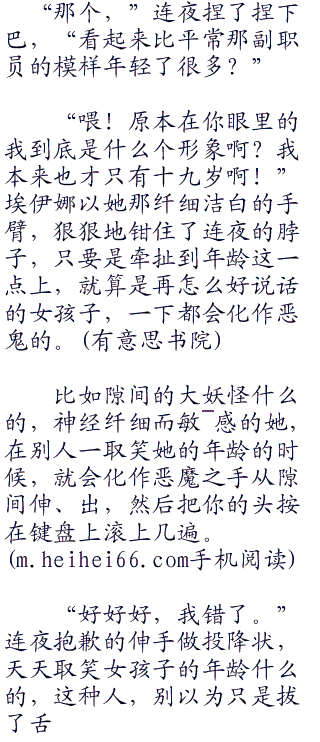 “那个，”连夜捏了捏下
巴，“看起来比平常那副职
员的模样年轻了很多？”
“喂！原本在你眼里的
我到底是什么个形象啊？我
本来也才只有十九岁啊！”
埃伊娜以她那纤细洁白的手
臂，狠狠地钳住了连夜的脖
子，只要是牵扯到年龄这一
点上，就算是再怎么好说话
的女孩子，一下都会化作恶
鬼的。(有意思书院)
比如隙间的大妖怪什么
的，神经纤细而敏¯感的她，
在别人一取笑她的年龄的时
候，就会化作恶魔之手从隙
间伸、出，然后把你的头按
在键盘上滚上几遍。
(m.heihei66.com手机阅读)
“好好好，我错了。”
连夜抱歉的伸手做投降状，
天天取笑女孩子的年龄什么
的，这种人，别以为只是拔
了舌